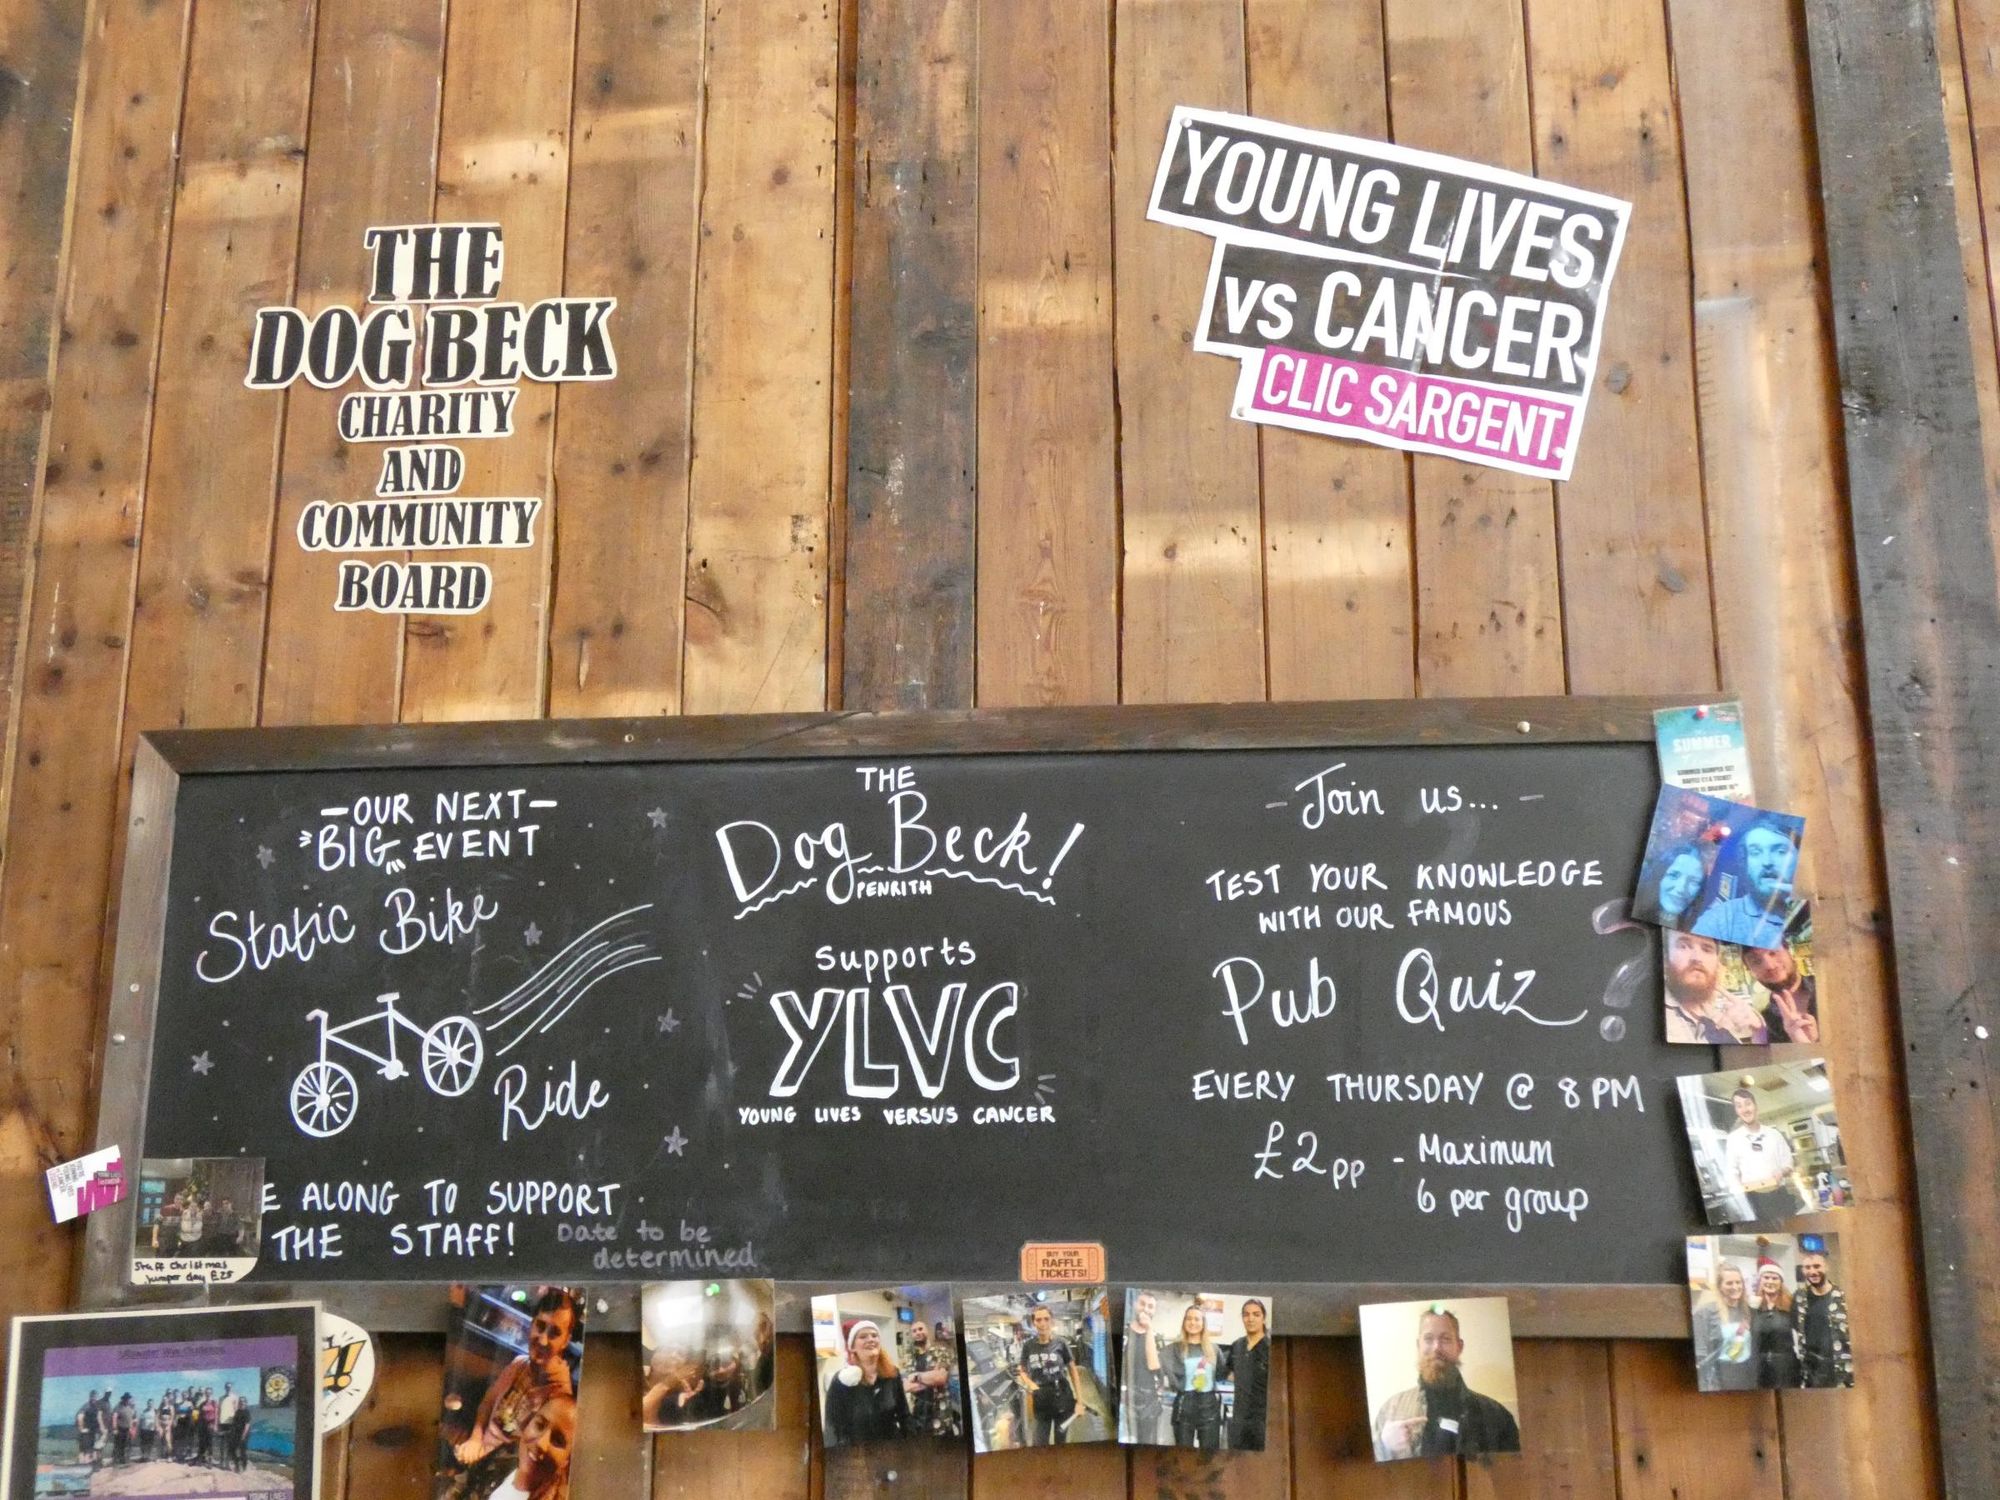 THE
DOG BECK
CHARITY
AND
COMMUNITY
BOARD
YOUNG LIVES
vs CANCER
CLIC SARGENT.
-OUR NEXT-
BIG EVENT
Static Bike
Ride
E ALONG TO SUPPORT
THE STAFF!
Date to be
determined
THE
Dog Beck!
PENRITH
Supports
YLVC
YOUNG LIVES VERSUS CANCER
BUY YOUR
RAFFLE
TICKETS!
- Join us... -
TEST YOUR KNOWLEDGE
WITH OUR FAMOUS
Pub Quiz?
EVERY THURSDAY @ 8PM
£2pp - Maximum
6 per group
SUMMER
Staff Christmas
jumper day £25
YOUNG LIVES